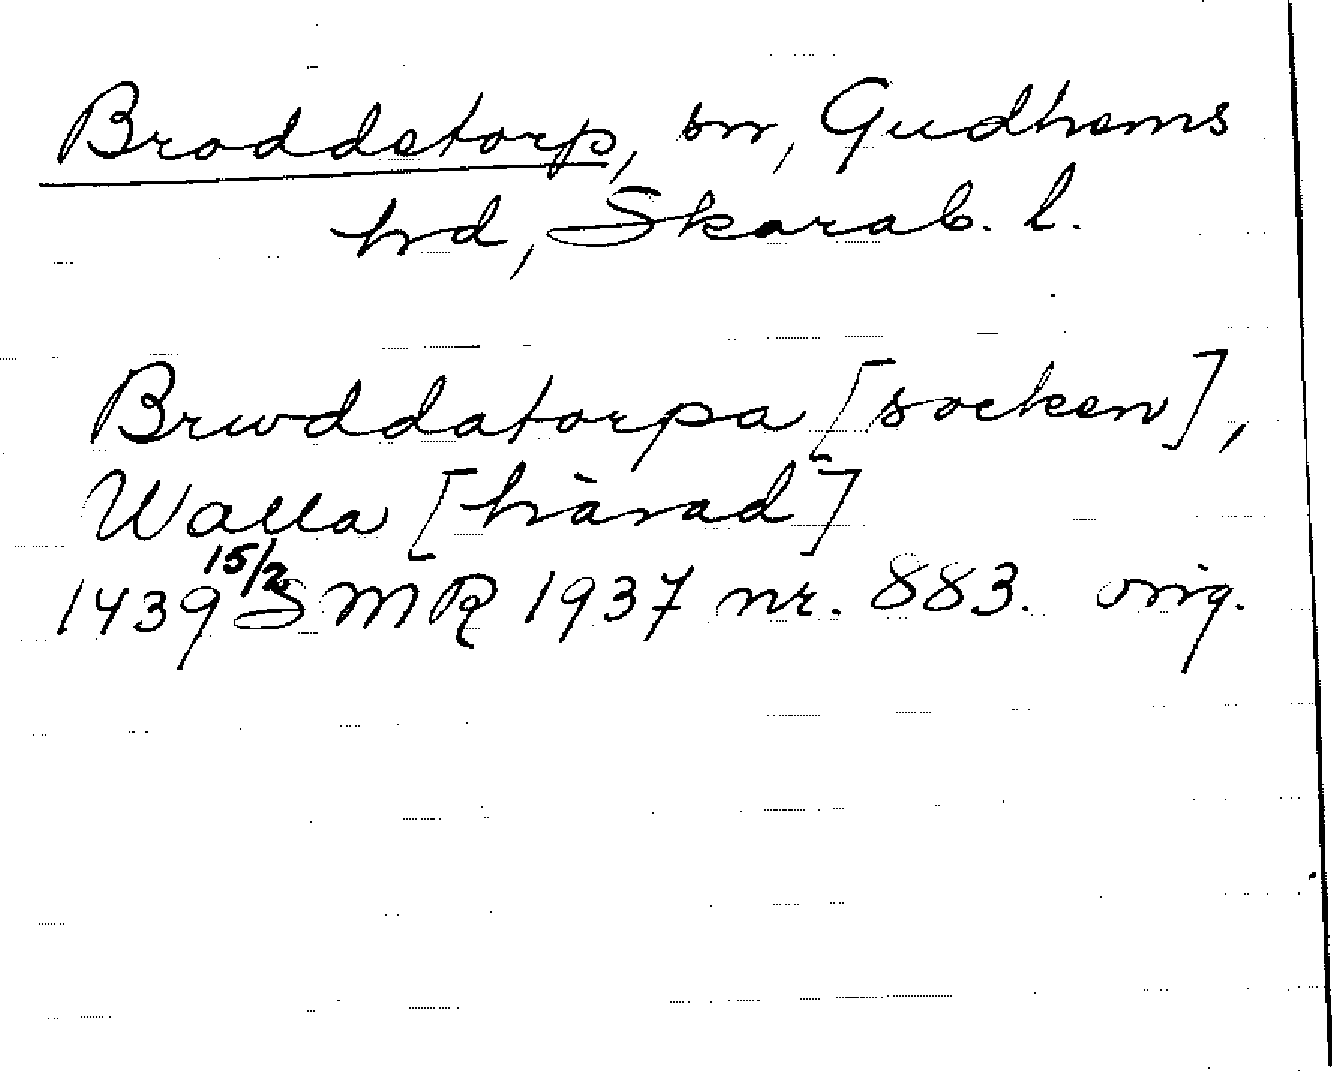 Broddetorp, sn, Gudhems
hd, Skarab. l.
Brwddatorpa [socken],
Walla [härad]
1439 15/2 SMR 1937 nr. 883. orig.